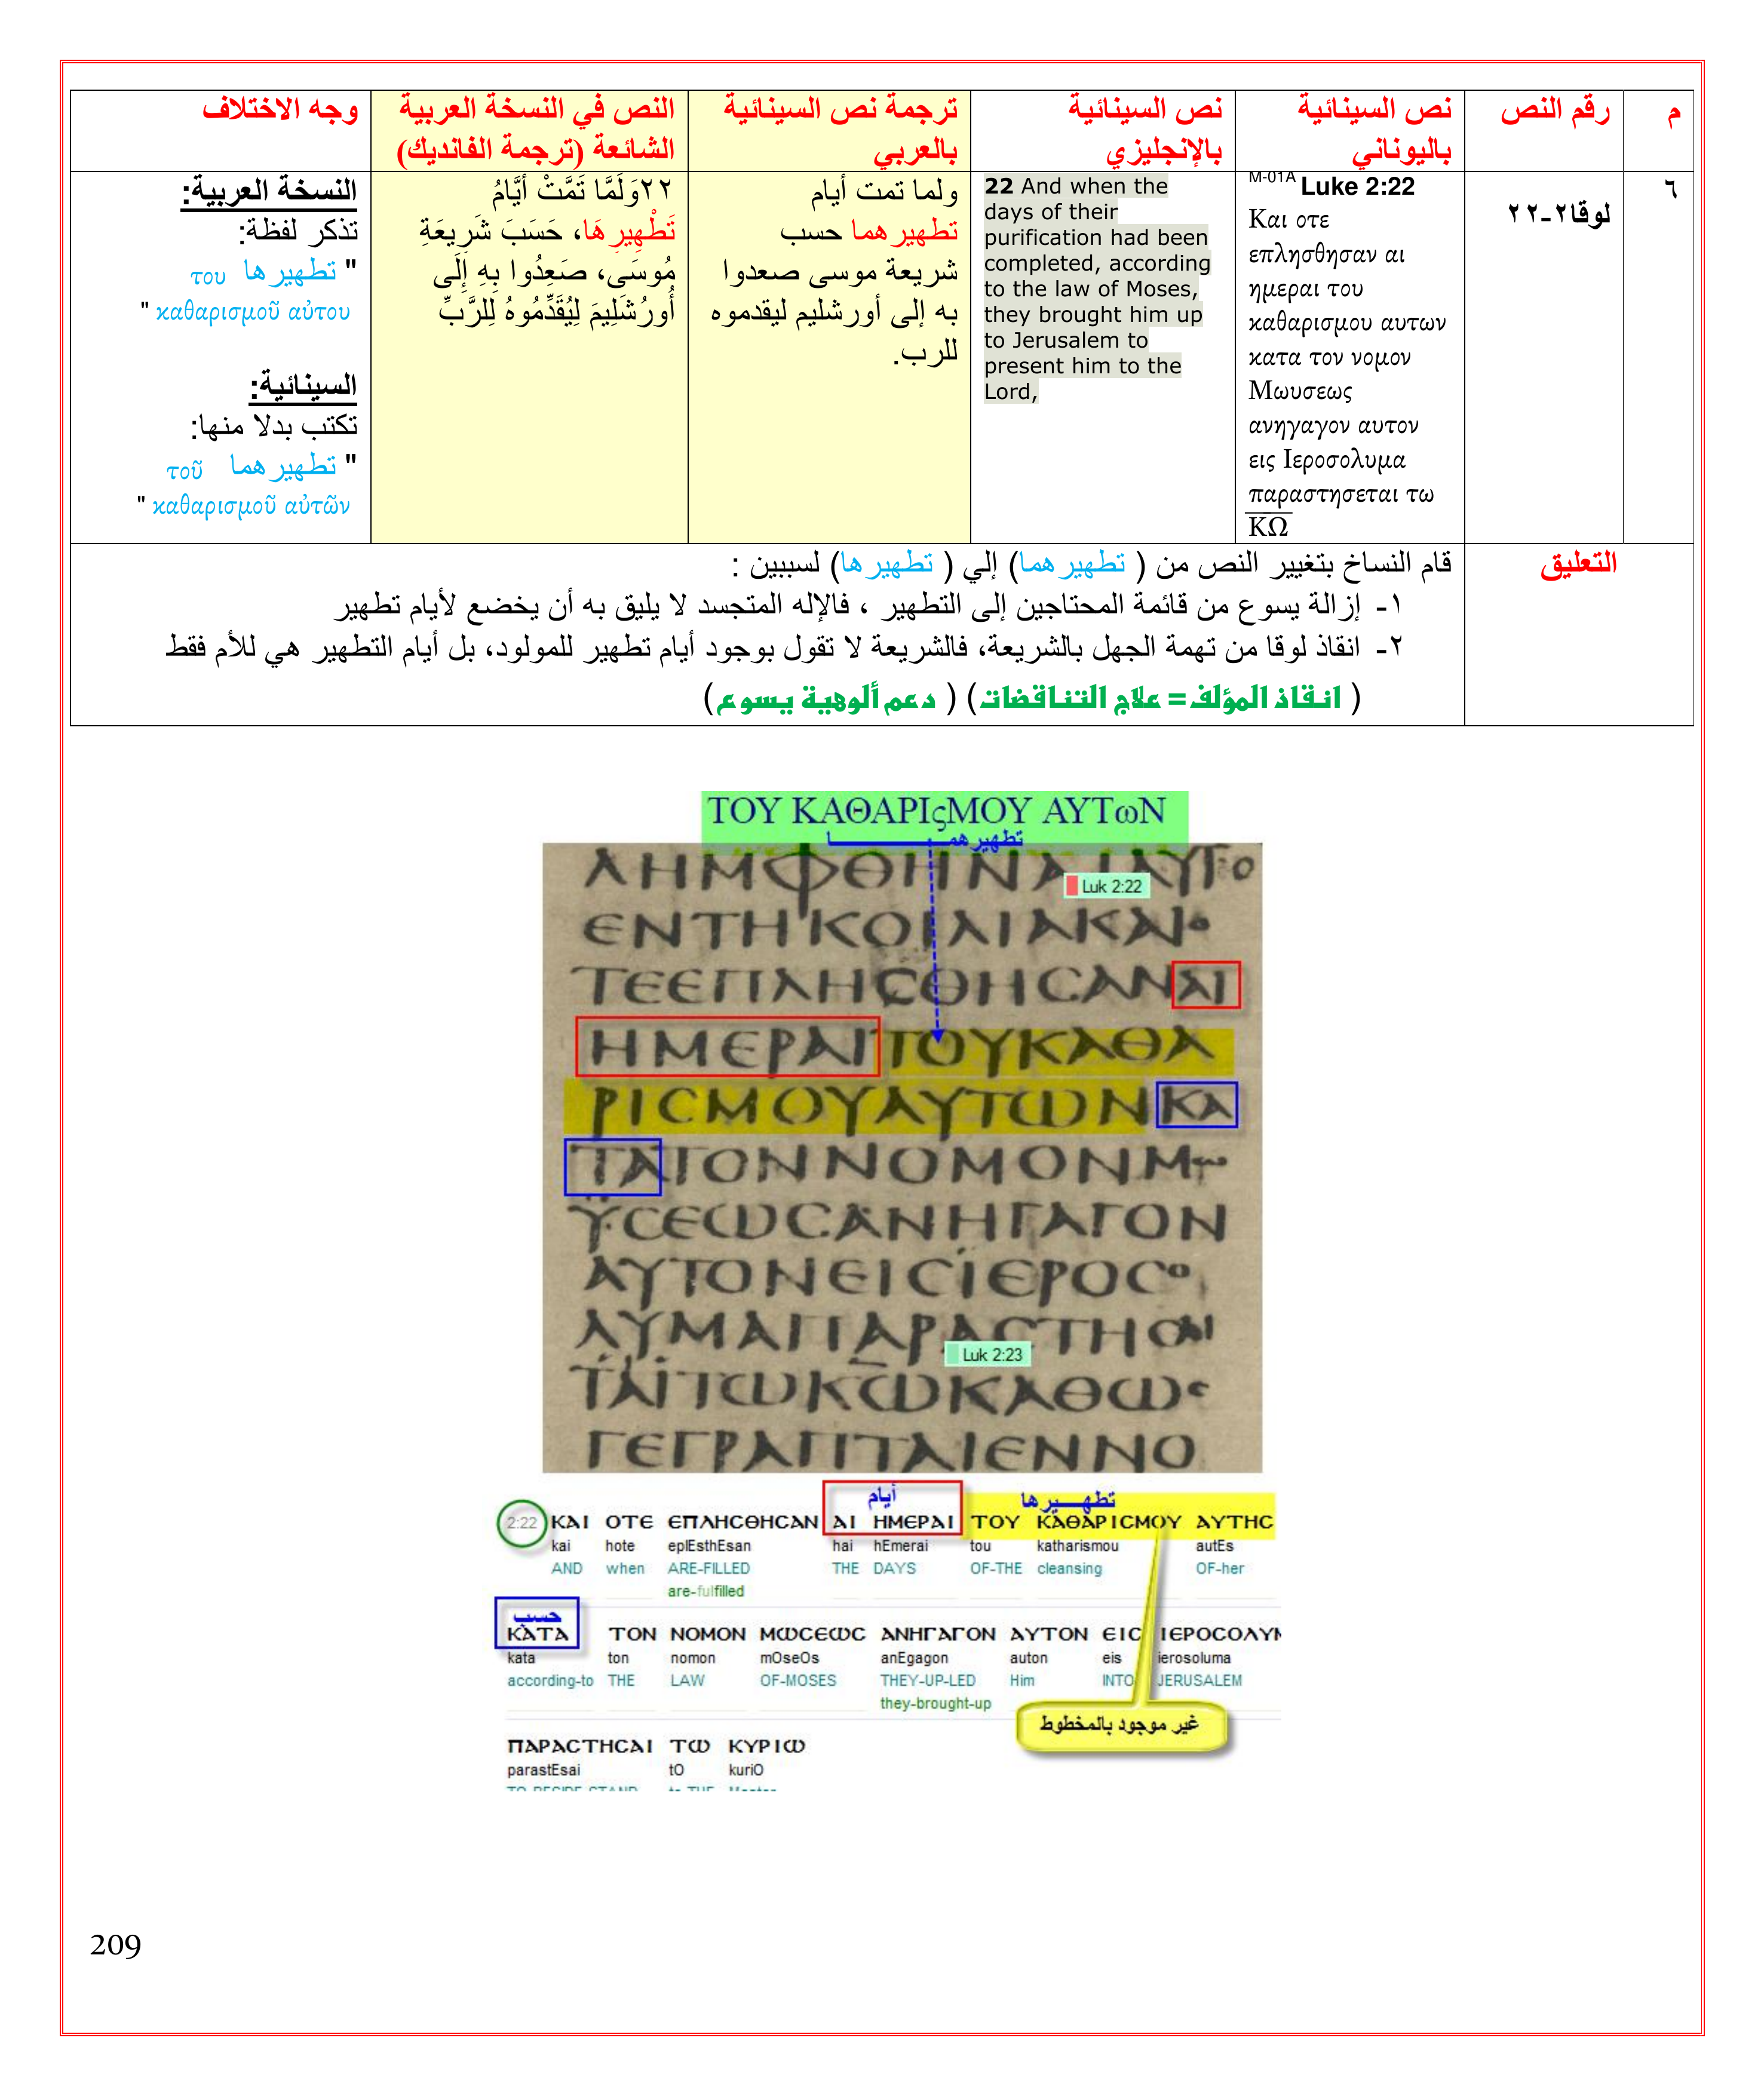 م
رقم النص
نص السينائية
باليوناني
نص السينائية
بالإنجليزي
ترجمة نص السينائية
بالعربي
النص في النسخة العربية
الشائعة (ترجمة الفانديك)
وجه الاختلاف
٦
لوقا٢-٢٢
M-01A Luke 2:22
Και οτε
επλησθησαν αι
ημεραι του
καθαρισμου αυτων
κατα τον νομον
Μωυσεως
ανηγαγον αυτον
εις Ιεροσολυμα
παραστησεται τω
ΚΩ
22 And when the
days of their
purification had been
completed, according
to the law of Moses,
they brought him up
to Jerusalem to
present him to the
Lord,
ولما تمت أيام
تطهيرهما حسب
شريعة موسى صعدوا
به إلى أورشليم ليقدموه
للرب.
٢٢وَلَمَّا تَمَّتْ أَيَّامُ
تَطْهِيرِهَا، حَسَبَ شَرِيعَةِ
مُوسَى، صَعِدُوا بِهِ إِلَى
أُورُشَلِيمَ لِيُقَدِّمُوهُ لِلرَّبِّ
النسخة العربية:
تذكر لفظة:
" تطهيرها του
καθαρισμοῦ αὐτου "
السينائية:
تكتب بدلا منها:
" تطهيرهما τοῦ
καθαρισμοῦ αὐτῶν "
التعليق
قام النساخ بتغيير النص من ( تطهيرهما) إلي ( تطهيرها) لسببين :
١- إزالة يسوع من قائمة المحتاجين إلى التطهير ، فالإله المتجسد لا يليق به أن يخضع لأيام تطهير
٢- انقاذ لوقا من تهمة الجهل بالشريعة، فالشريعة لا تقول بوجود أيام تطهير للمولود، بل أيام التطهير هي للأم فقط
( انقاذ المؤلف= علاج التناقضات) ( دعم ألوهية يسوع)
ΤΟΥ ΚΑΘΑΡΙςΜΟΥ ΑΥΤωΝ
تطهيرهمــــــــا
ΛΗΜΦΘΗΝΑΙΑΥΤΟ
Luk 2:22
ΕΝΤΗΚΟΙΛΙΑΚΑΙΟ
ΤΕΕΠΛΗϹΘΗϹΑΝΑΙ
ΗΜΕΡΑΙΤΟΥΚΑΘΑ
ΡΙϹΜΟΥΑΥΤΩΝΚΑ
ΤΑΤΟΝΝΟΜΟΝΜω
ΥϹΕΩϹΑΝΗΓΑΓΟΝ
ΑΥΤΟΝΕΙϹΙΕΡΟϹΟ
ΛΥΜΑΠΑΡΑϹΤΗϹΑΙ
Luk 2:23
ΤΑΙΤΩΚΩΚΑΘΩϹ
ΓΕΓΡΑΠΤΑΙΕΝΝΟ
أيام تطهـــيرها
2:22 ΚΑΙ ΟΤΕ ΕΠΛΗϹΘΗϹΑΝ ΑΙ ΗΜΕΡΑΙ ΤΟΥ ΚΑΘΑΡΙϹΜΟΥ ΑΥΤΗϹ
kai hote eplEsthEsan hai hEmerai tou katharismou autEs
AND when ARE-FILLED THE DAYS OF-THE cleansing OF-her
are-fulfilled
حسب
ΚΑΤΑ ΤΟΝ ΝΟΜΟΝ ΜΩϹΕΩϹ ΑΝΗΓΑΓΟΝ ΑΥΤΟΝ ΕΙϹ ΙΕΡΟϹΟΛΥΜ
kata ton nomon mOseOs anEgagon auton eis ierosoluma
according-to THE LAW OF-MOSES THEY-UP-LED Him INTO JERUSALEM
they-brought-up
غير موجود بالمخطوط
ΠΑΡΑϹΤΗϹΑΙ ΤΩ ΚΥΡΙΩ
parastEsai tO kuriO
209